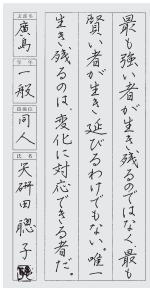 最も強い者が生き残るのではなく最も
賢い者が生き延びるわけでもない。唯一
生き残るのは、変化に対応できる者だ。
支部名
廣島
学年
一般
段級位
同人
氏名
矢研田聰子